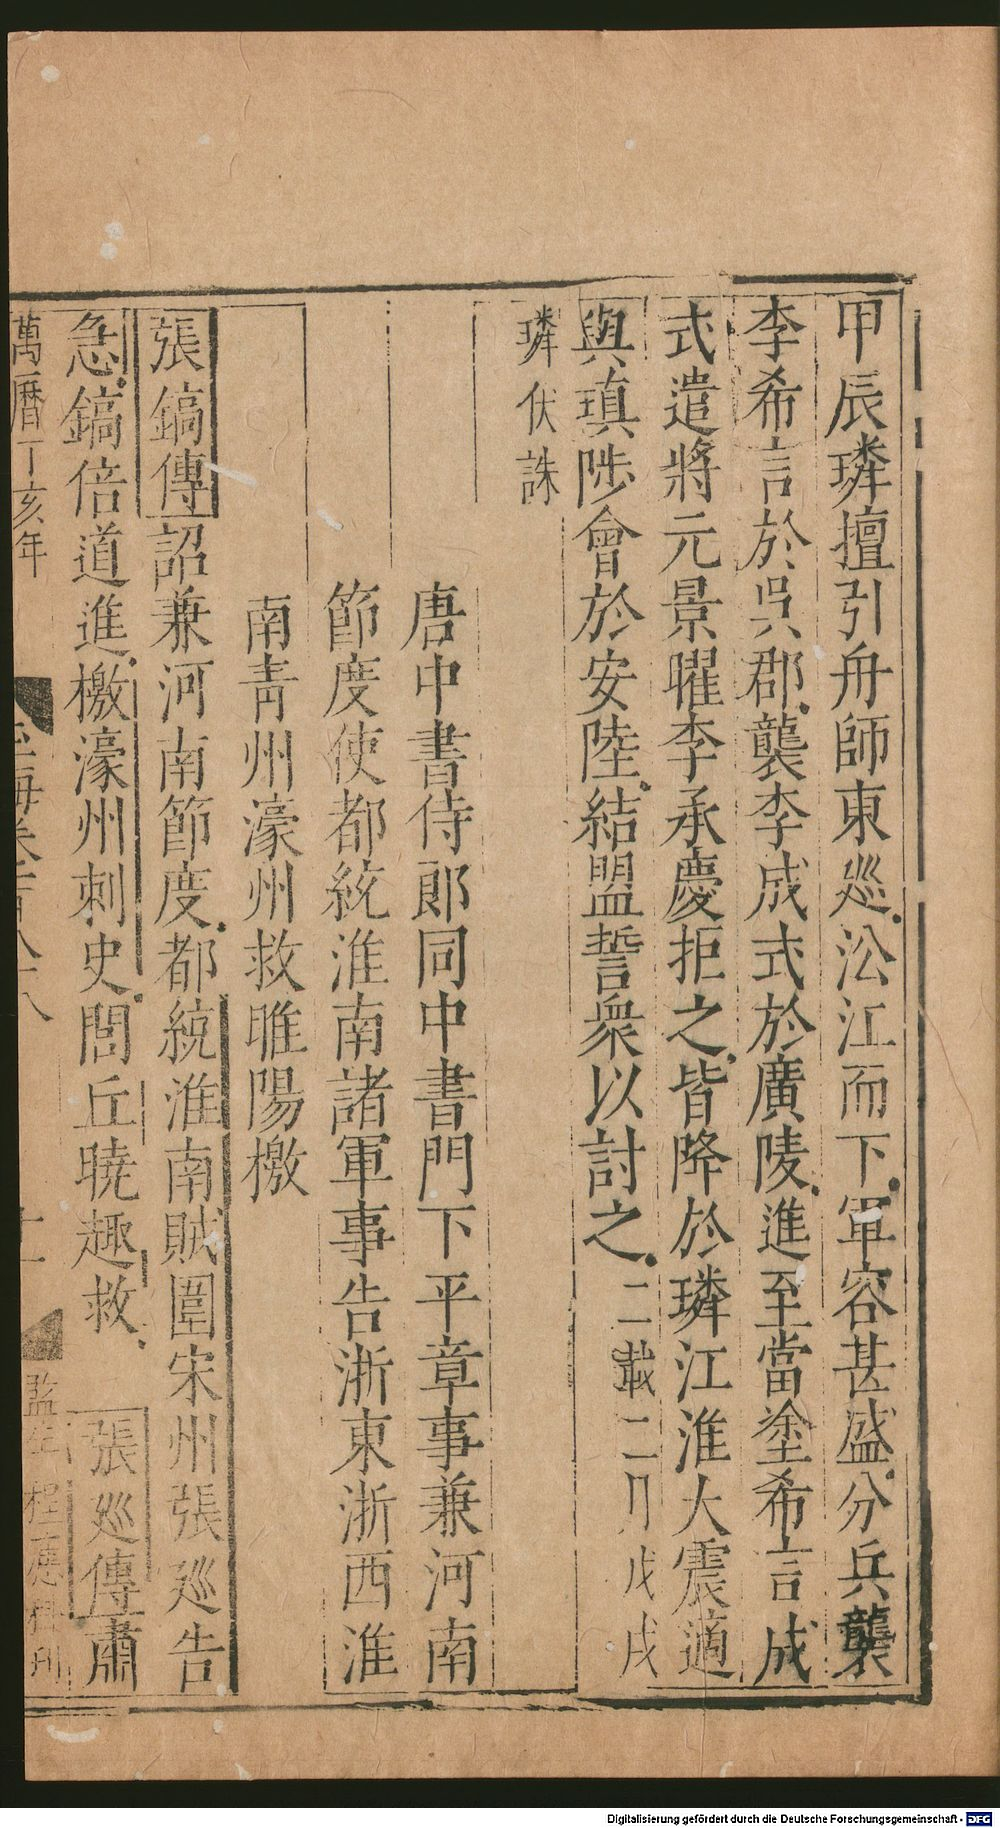 甲辰璘擅引舟師東巡㳂江而下軍容甚盛分兵襲
李希言於吳郡襲李成式於廣陵進至當塗希言成
式遣將元景曜李承慶拒之皆降於璘江淮大震適
與瑱陟會於安陸結盟誓衆以討之二載二月戊戌
璘伏誅
唐中書侍郎同中書門下平章事兼河南
節度使都統淮南諸軍事告浙東浙西淮
南青州濠州救睢陽檄
張鎬傳詔兼河南節度都統淮南賊圍宋州張巡告
急鎬倍道進檄濠州刺史閭丘曉趣救張巡傳肅
萬曆丁亥年
玉海卷一百八十八
十一
監生程應科刊
Digitalisierung gefördert durch die Deutsche Forschungsgemeinschaft - DFG